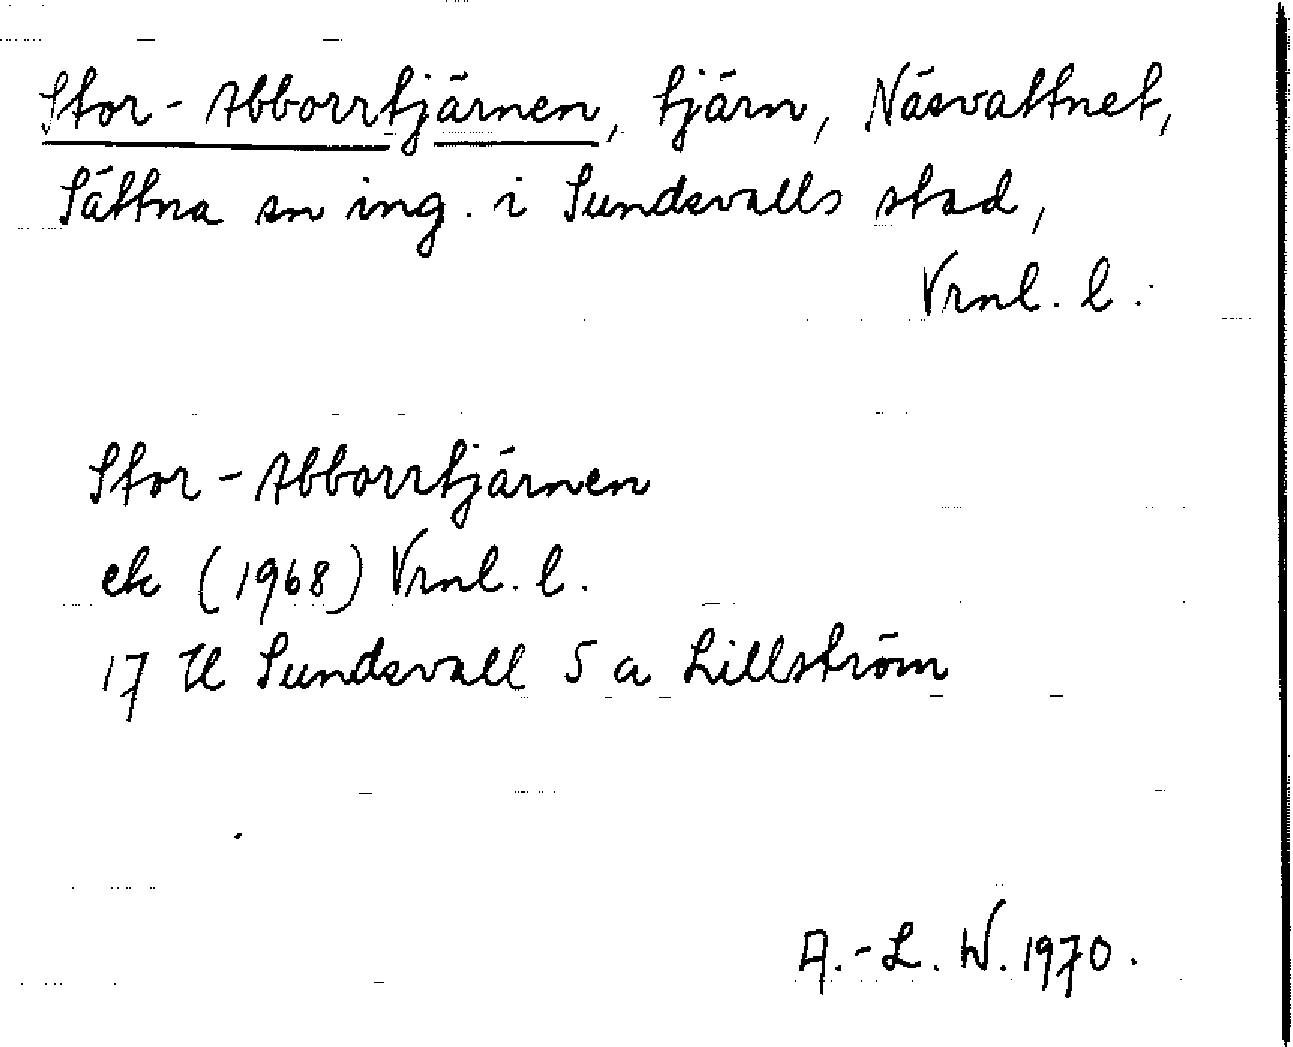 Stor-Abborrtjärnen, tjärn, Näsvattnet,
Sättna sn ing. i Sundsvalls stad,
Vrnl. l.
Stor-Abborrtjärnen
ek (1968) Vrnl. l.
17 H Sundsvall 5 a Lillström
A.-L. W. 1970.